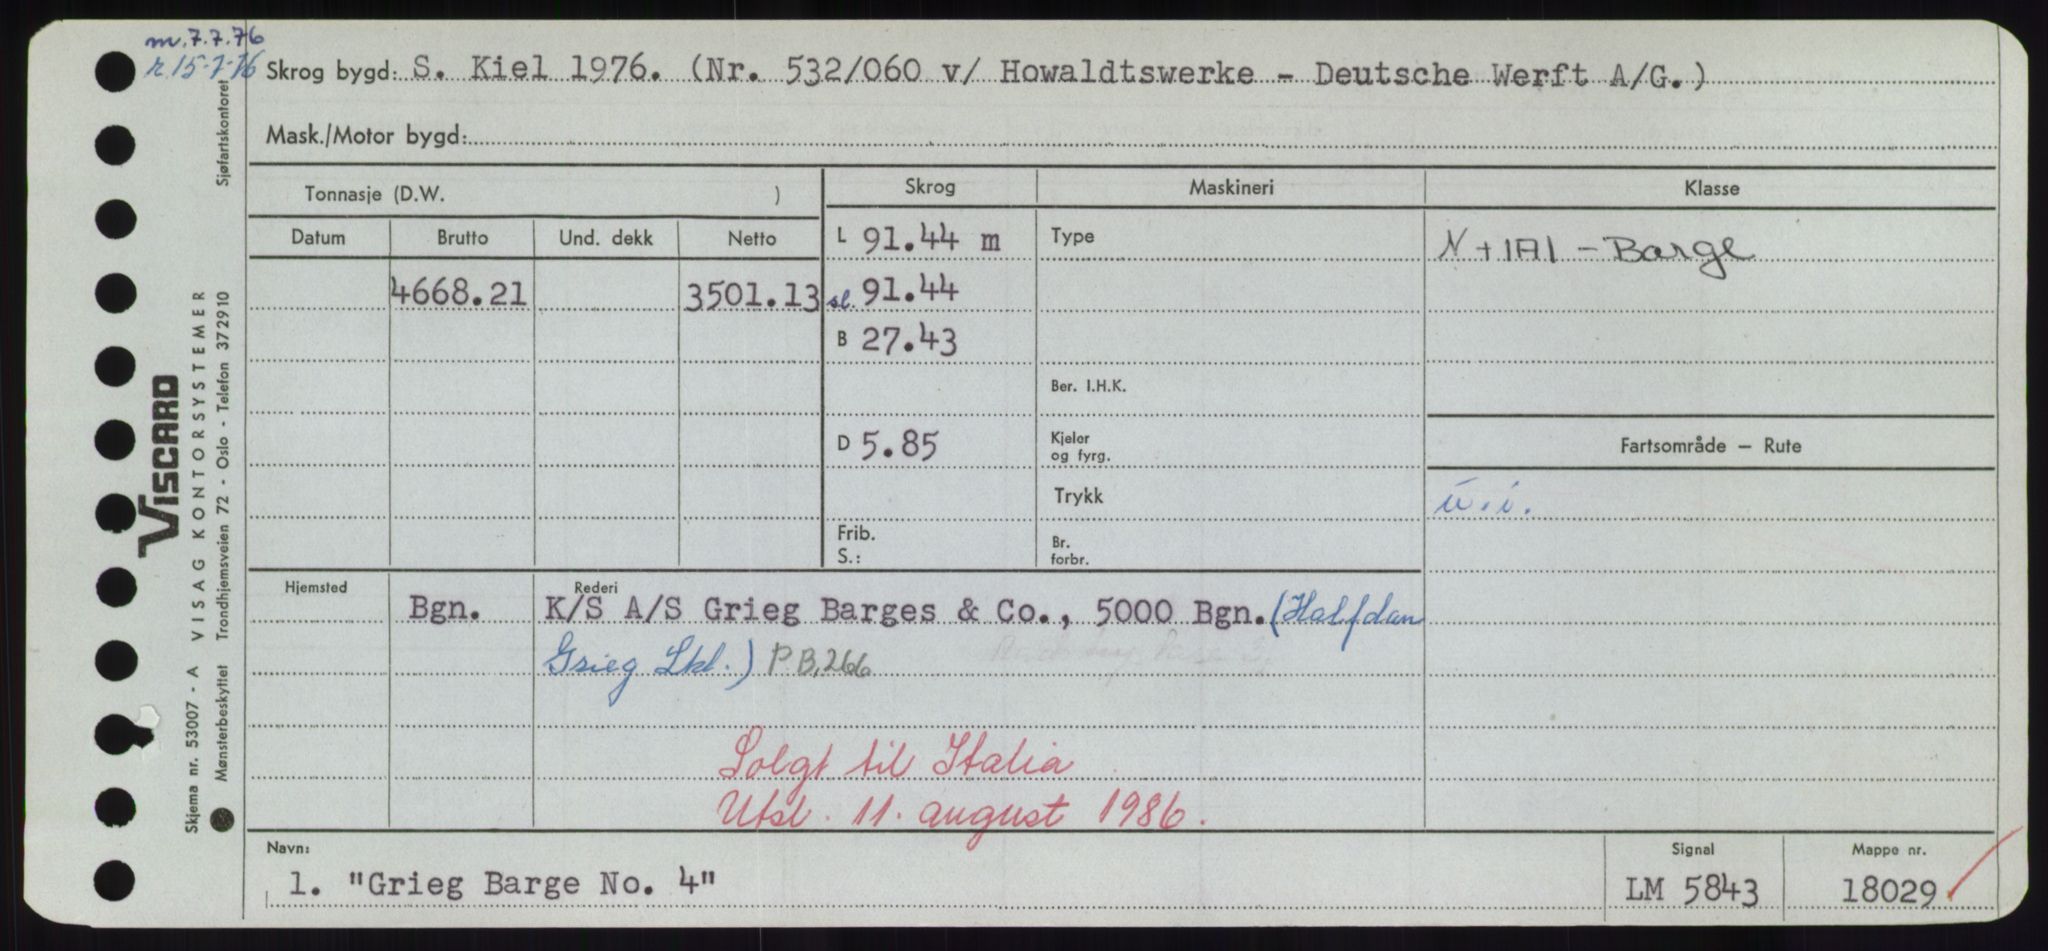 m.7.7.76
r 15-7-76
Skrog bygd: S. Kiel 1976. (Nr. 532/060 v/ Howaldtswerke - Deutsche Werft A/G.)
Mask./Motor bygd:
Tonnasje (D.W. )
Skrog
Maskineri
Klasse
Datum
Brutto
Und. dekk
Netto
L 91.44 m
Type
N + 1A1 - Barge
4668.21
3501.13
sl. 91.44
B 27.43
Ber. I.H.K.
D 5.85
Kjeler
og fyrg.
Fartsområde — Rute
Trykk
u.i.
Frib.
S.:
Br.
forbr.
Hjemsted
Rederi
Bgn.
K/S A/S Grieg Barges & Co., 5000 Bgn. (Halfdan
Grieg Lkl.) P.B. 266
Solgt til Italia
Utsl. 11. august 1986.
Navn:
1. "Grieg Barge No. 4"
Signal
LM 5843
Mappe nr.
18029
VISCARD
Skjema nr. 53007 - A VISAG KONTORSYSTEMER
Mønsterbeskyttet Trondhjemsveien 72 - Oslo - Telefon 372910 Sjøfartskontoret